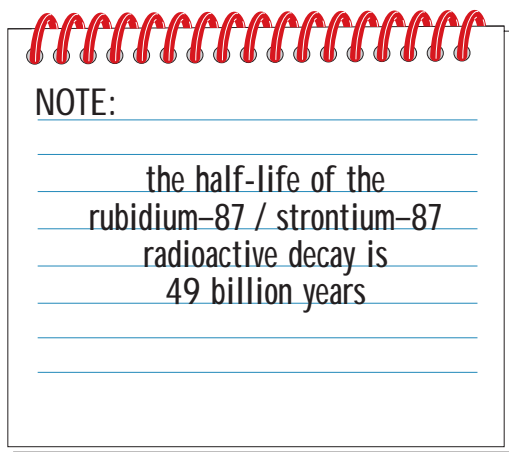 NOTE:
the half-life of the
rubidium–87 / strontium–87
radioactive decay is
49 billion years